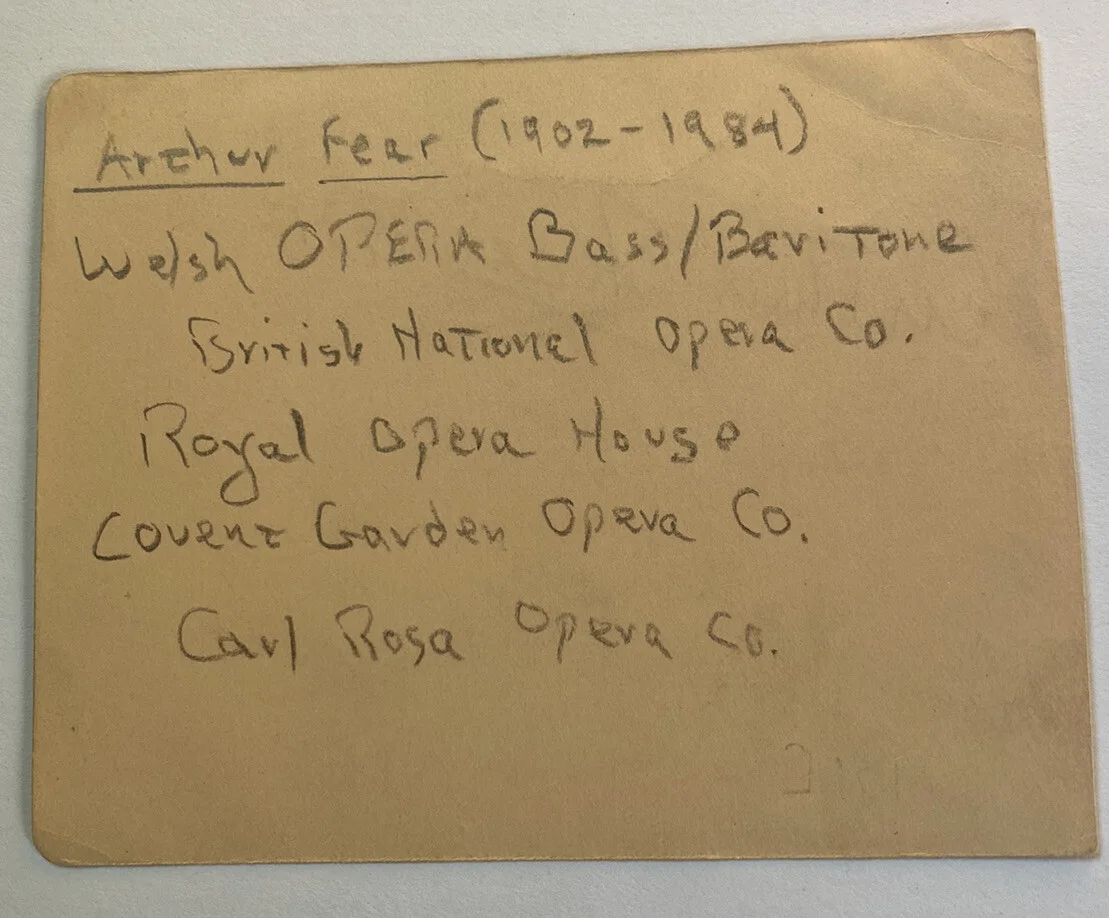 Arthur Fear (1902-1984)
Welsh OPERA Bass/Baritone
British National Opera Co.
Royal Opera House
Covent Garden Opera Co.
Carl Rosa Opera Co.